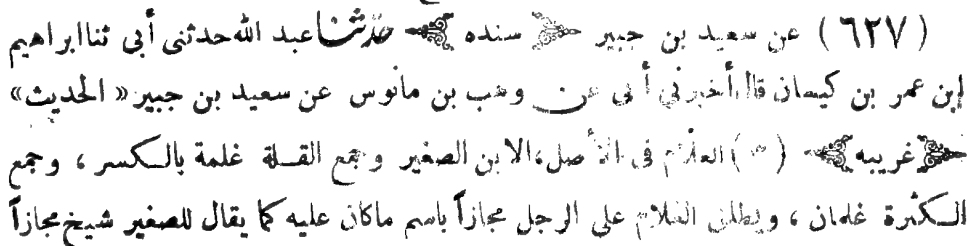 (٦٢٧) عن سعيد بن جبير ﴿ سنده ﴾ حدّثنا عبد الله حدثنى أبى ثنا ابراهيم
ابن عمر بن كيسان قال أخبرنى أبى عن وهب بن مانوس عن سعيد بن جبير « الحديث »
﴿ غريبه ﴾ (٣) الغلام فى الأصل، الابن الصغير وجمع القلة غلمة بالكسر ، وجمع
الكثرة غلمان ، ويطلق الغلام على الرجل مجازاً باسم ماكان عليه كما يقال للصغير شيخ مجازاً